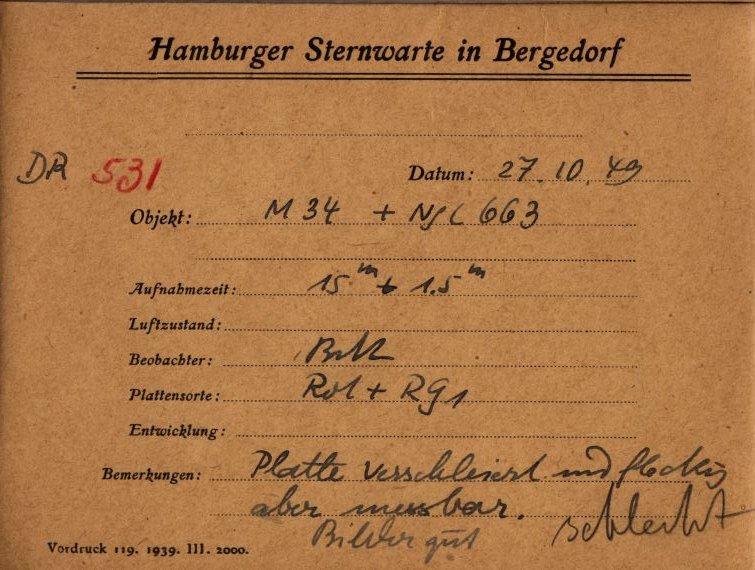 Hamburger Sternwarte in Bergedorf
DR 531
Datum: 27.10.49
Objekt: M 34 + NGC 663
Aufnahmezeit: 15 m + 1.5 m
Luftzustand:
Beobachter:
Plattensorte: Rot + RG1
Entwicklung:
Bemerkungen: Platte verschleiert und fleckig
aber messbar. schlecht
Bilder gut
Vordruck 119. 1939. III. 2000.